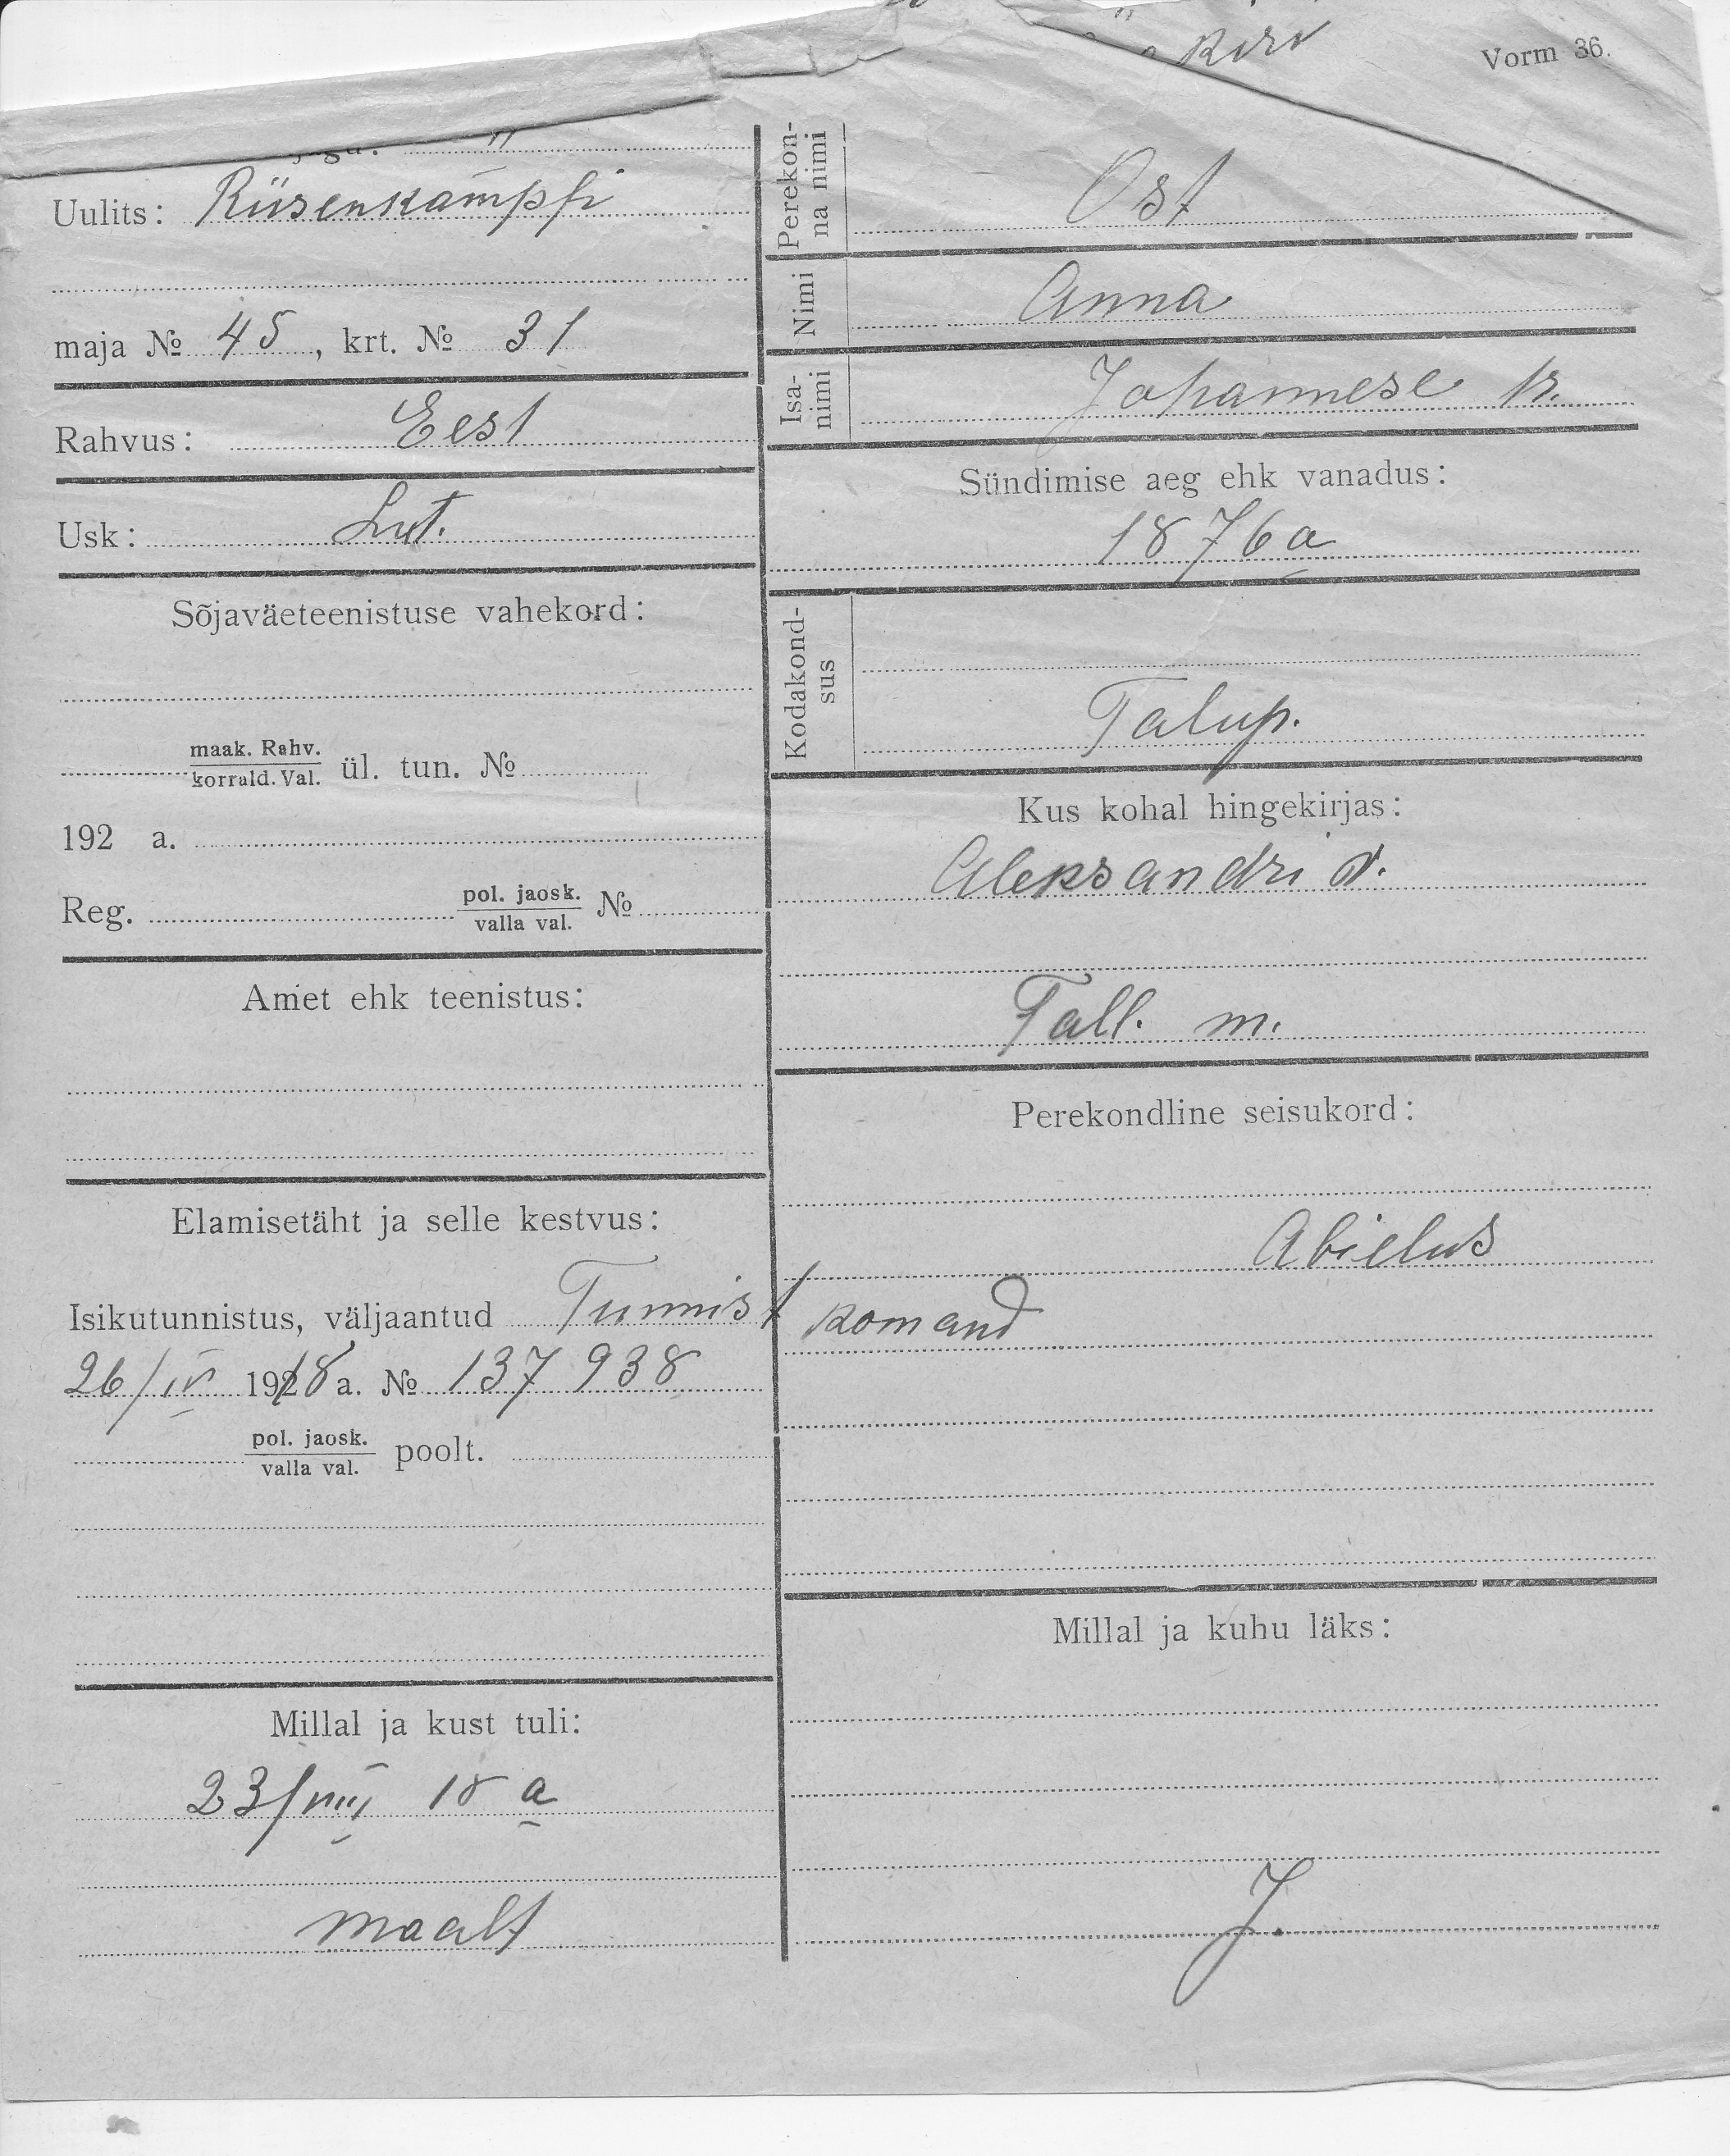 kiri
Vorm 36.
Uulits: Rüsenkampfi
maja № 45, krt. № 31
Rahvus: Eest
Usk: Lut.
Sõjaväeteenistuse vahekord:
maak. Rahv.
korrald. Val. ül. tun. №
192 a.
Reg. pol. jaosk.
valla val. №
Amet ehk teenistus:
Elamisetäht ja selle kestvus:
Isikutunnistus, väljaantud Tunnist komand
26/IV 1918 a. № 137 938
pol. jaosk.
valla val. poolt.
Millal ja kust tuli:
23/VIII 18 a
maalt
Perekon-
na nimi Ost
Nimi Anna
Isa-
nimi Johannese tr.
Sündimise aeg ehk vanadus:
1876 a
Kodakond-
sus Talup.
Kus kohal hingekirjas:
Aleksandri v.
Tall. m.
Perekondline seisukord:
Abielus
Millal ja kuhu läks:
J.